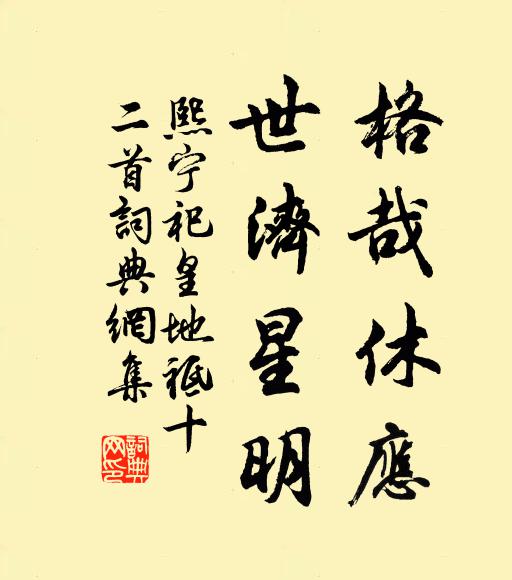 格哉休應
世濟星明
熙宁祀皇地祗十
二首詞典網集
詞典网印